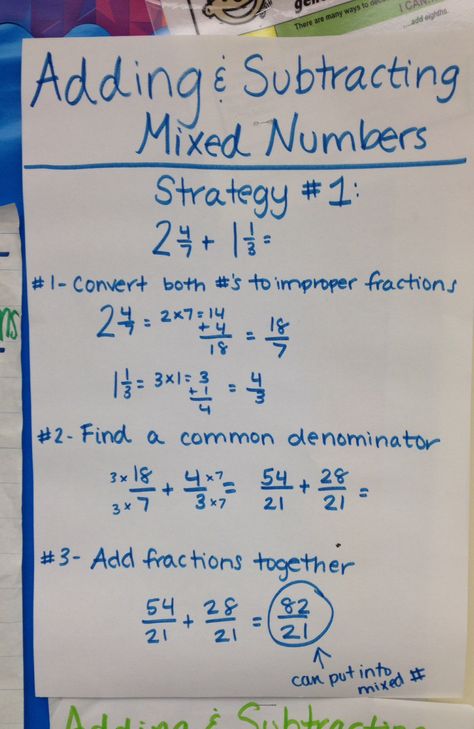 There are many ways to
I CAN...
...add eighths.
Adding & Subtracting
Mixed Numbers
Strategy #1:
2 4/7 + 1 1/3 =
#1- Convert both #'s to improper fractions
2 4/7 = 2x7=14
+4
18 = 18/7
1 1/3 = 3x1=3
+1
4 = 4/3
#2- Find a common denominator
3x 18/7 3x + 4/3 x7 x7 = 54/21 + 28/21 =
#3- Add fractions together
54/21 + 28/21 = 82/21
can put into
mixed #
Adding & Subtracting